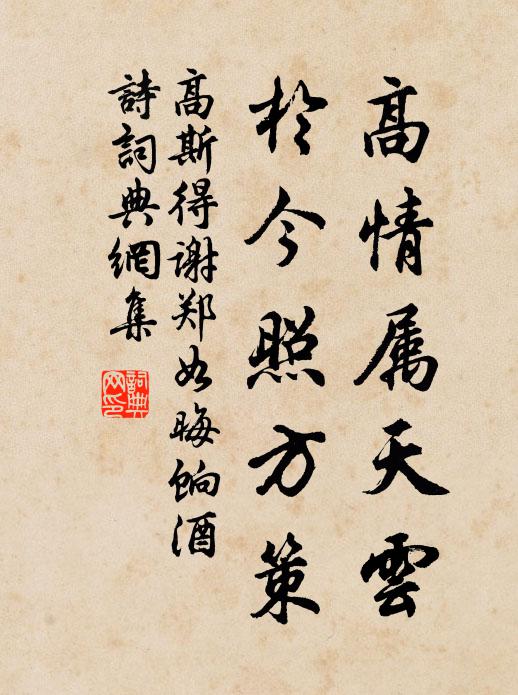 高情属天雲
於今照方策
高斯得谢郑如晦餉酒
詩詞典網集
詞典网印